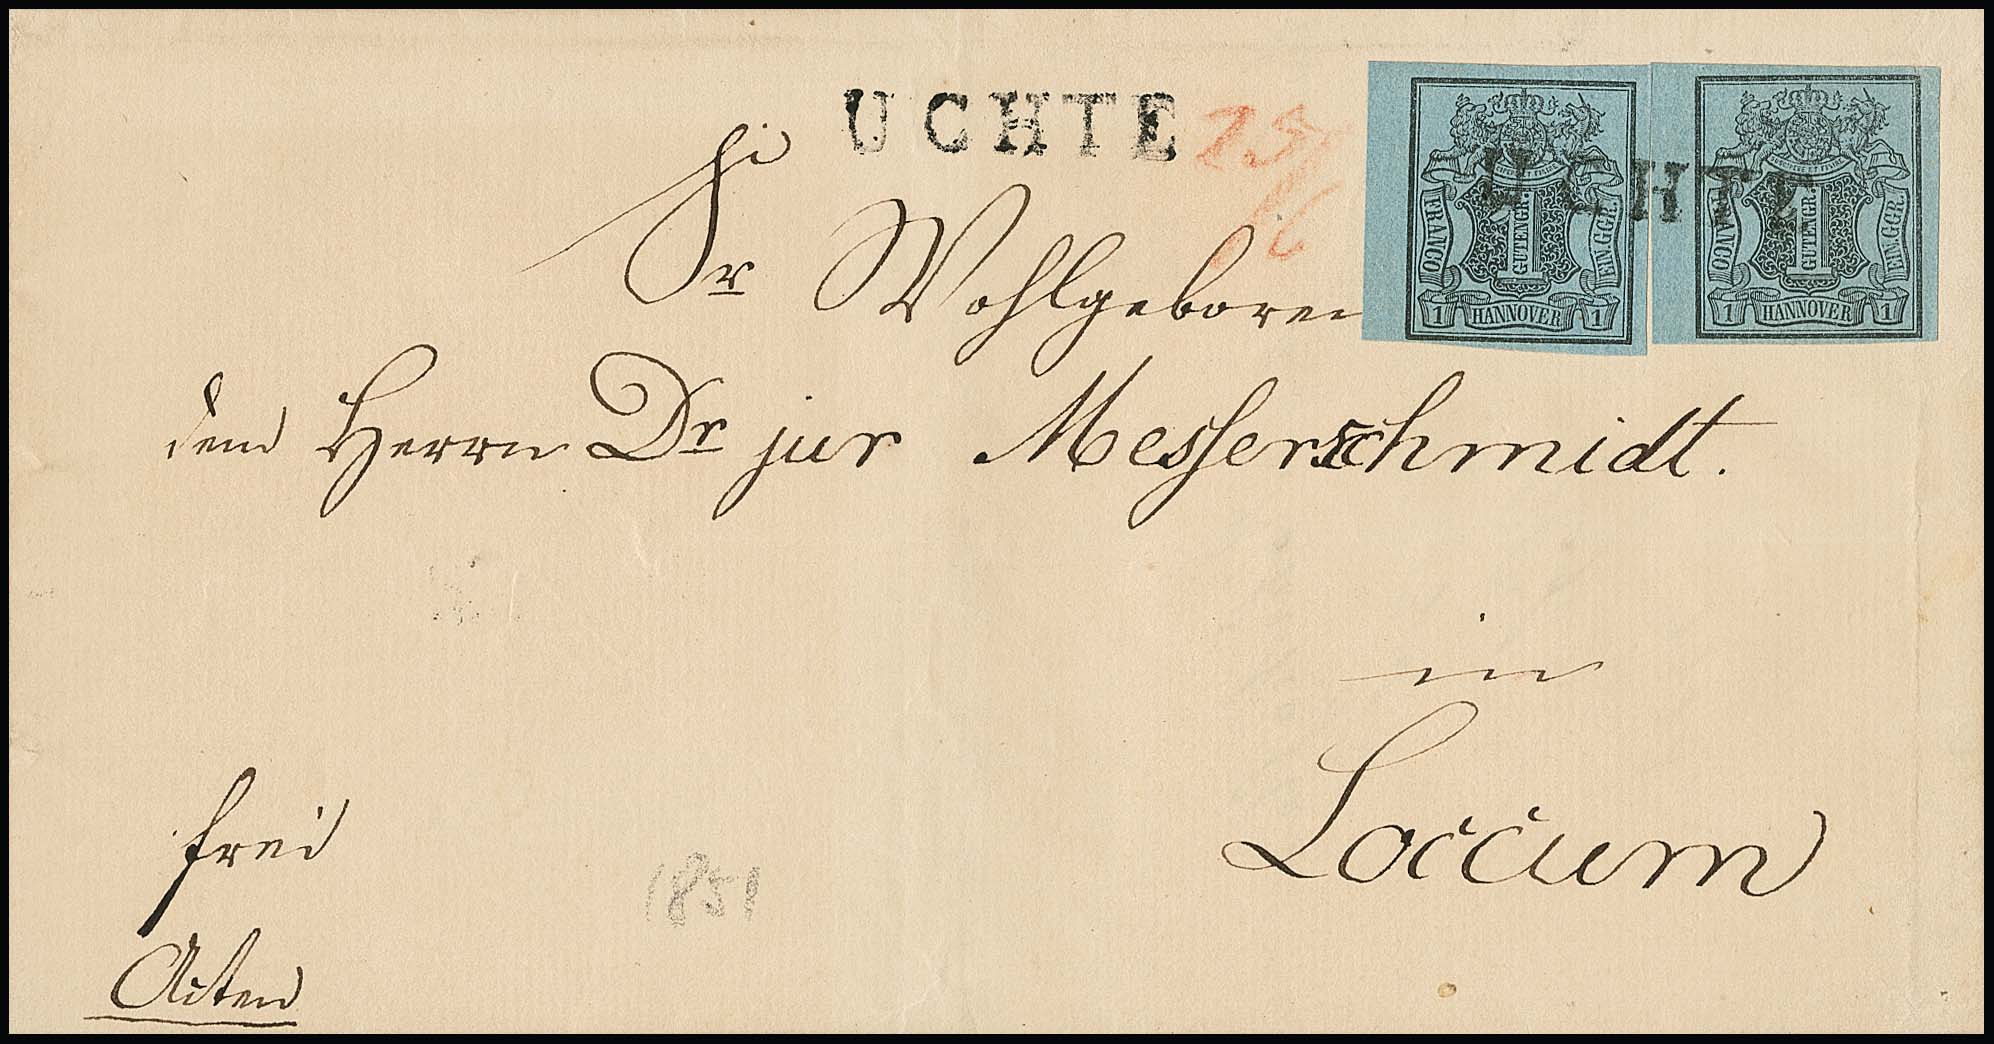 UCHTE
25/6
Sr Wohlgeboren
dem Herrn Dr jur Messerschmidt.
in
Loccum
frei
Acten
1851
UCHTE
FRANCO
1 GUTENGR.
EIN GGR.
1 HANNOVER 1
FRANCO
1 GUTENGR.
EIN GGR.
1 HANNOVER 1